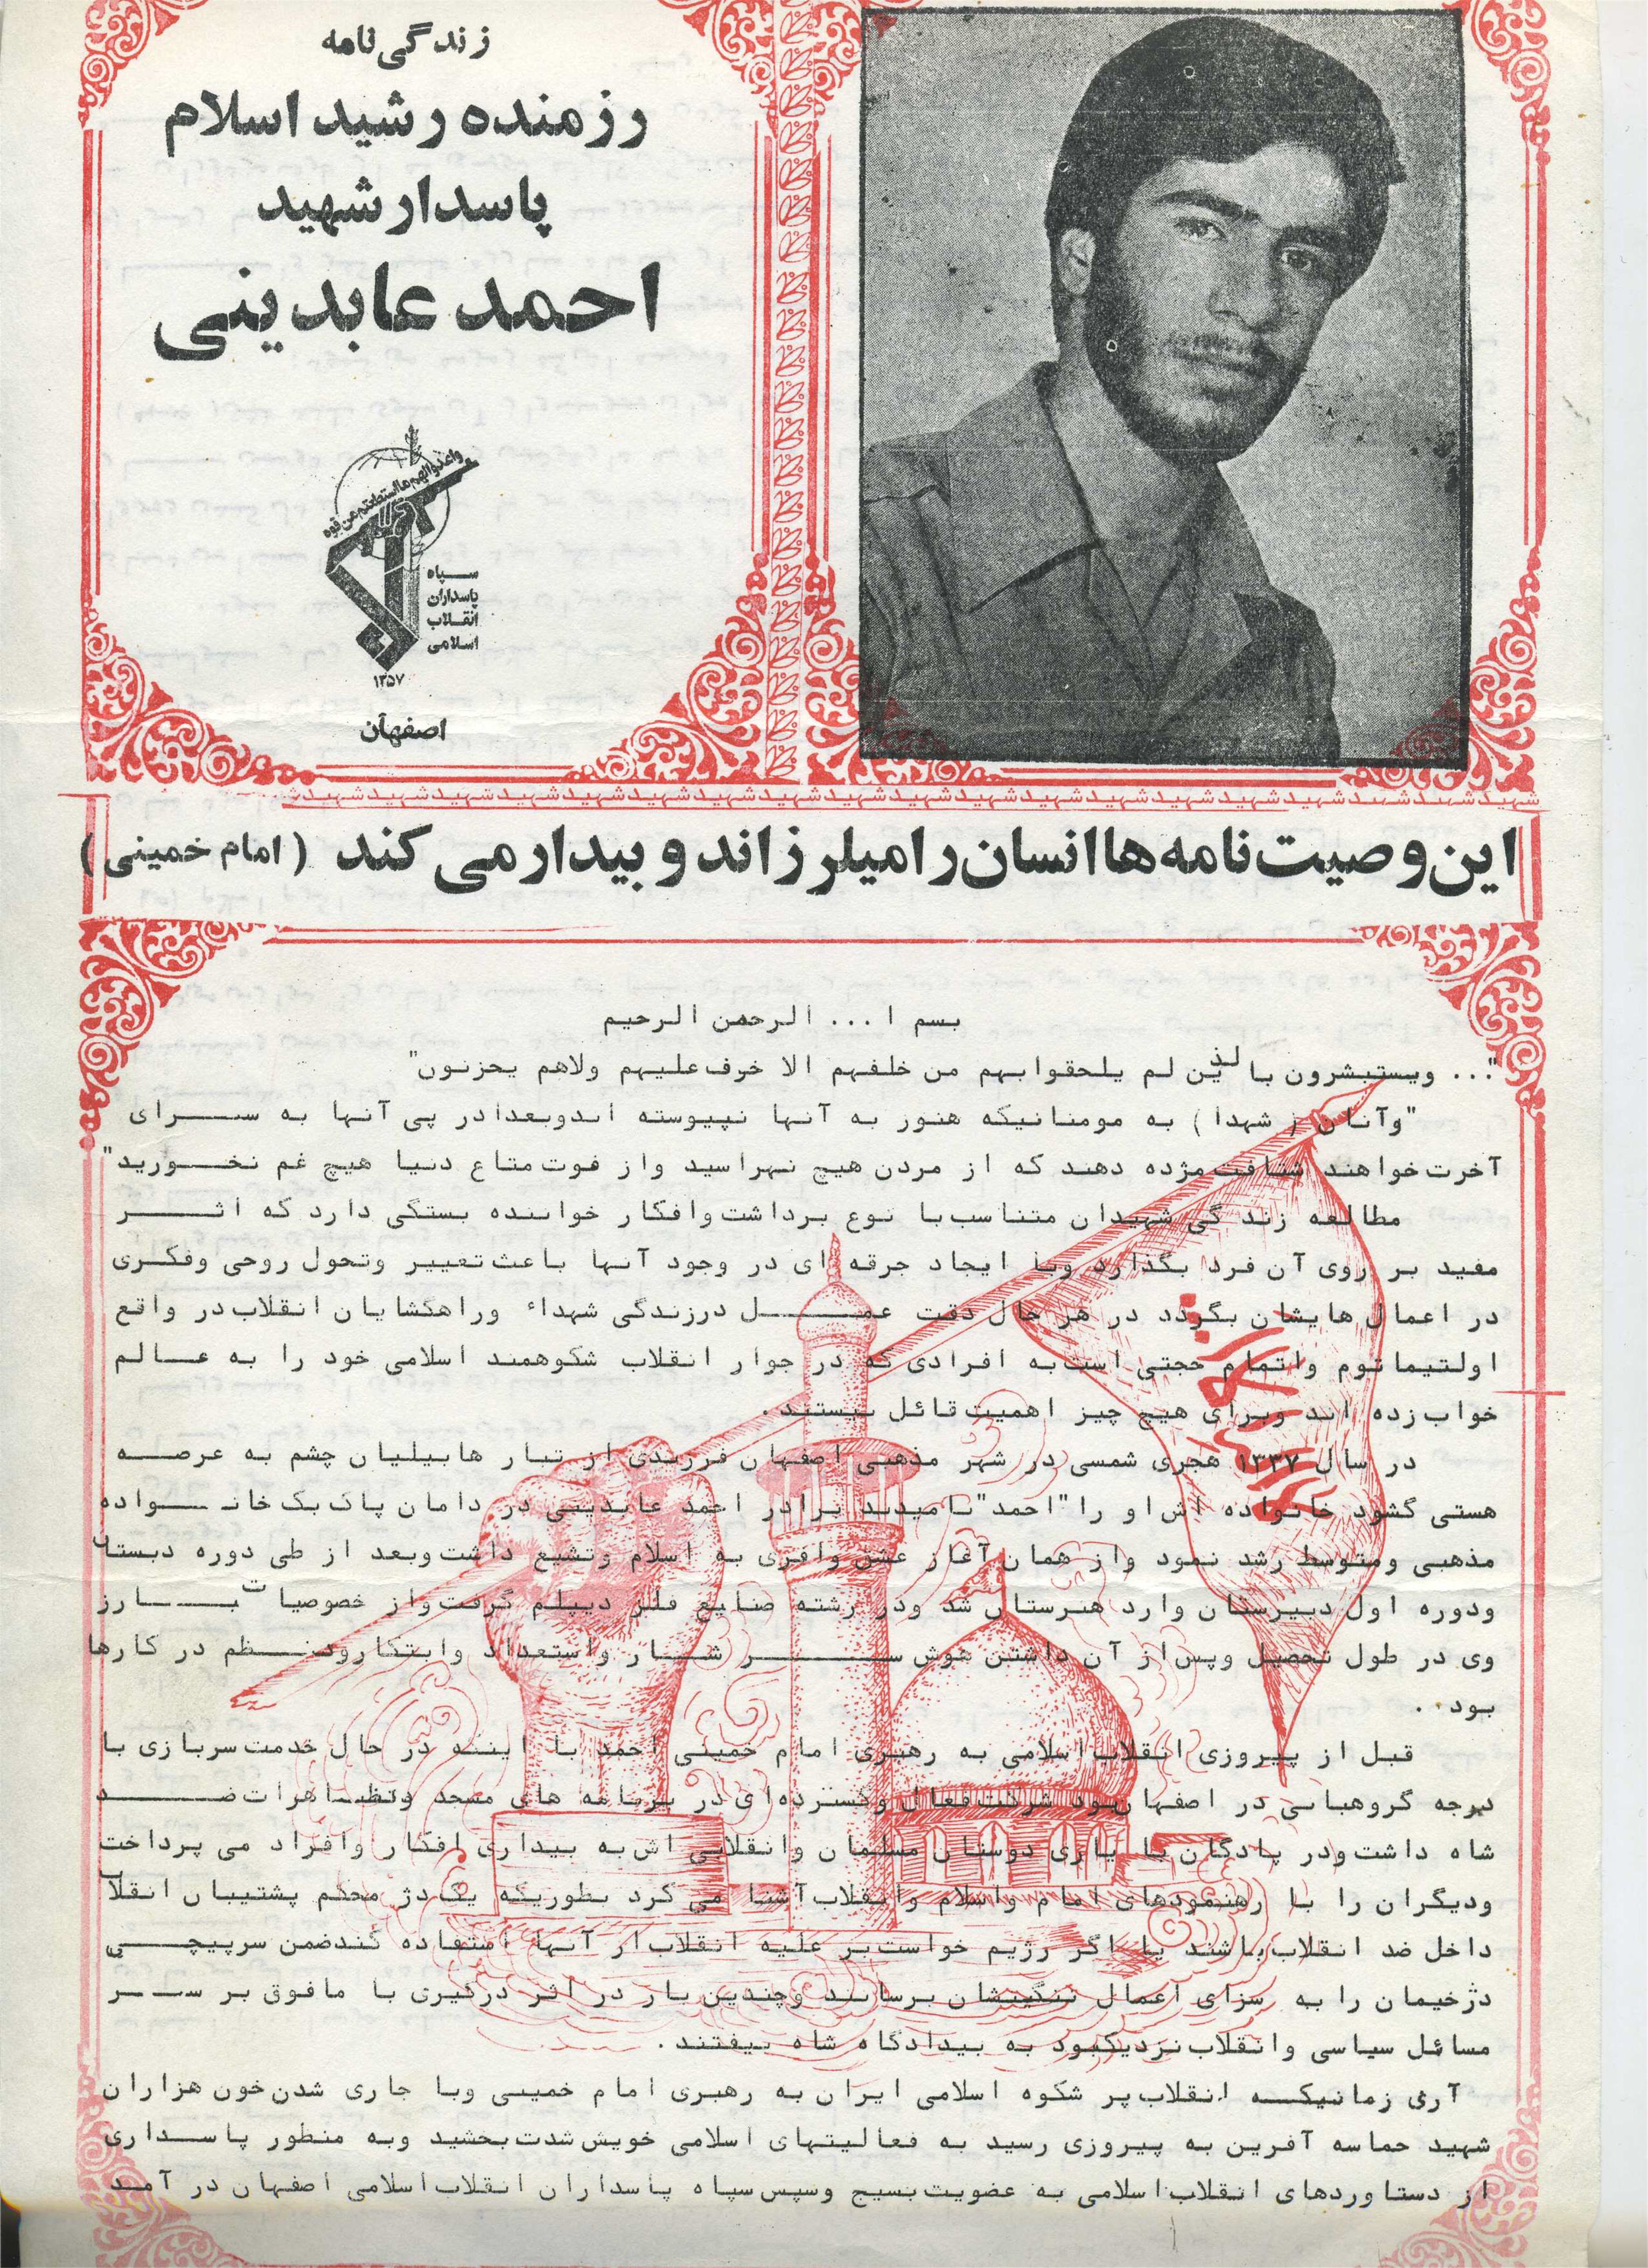 زندگی نامه
رزمنده رشید اسلام
پاسدار شهید
احمد عابدینی
واعدوالهم مااستطعتم من قوه
سپاه
پاسداران
انقلاب
اسلامی
۱۳۵۷
اصفهان
شهید شهید شهید شهید شهید شهید شهید شهید شهید شهید شهید شهید شهید شهید شهید شهید شهید شهید شهید
این وصیت نامه ها انسان را میلرزاند و بیدار می کند (امام خمینی)
بسم ا... الرحمن الرحیم
"... ویستبشرون بالذین لم یلحقوابهم من خلفهم الا خرف علیهم ولاهم یحزنون"
"وآنان (شهدا) به مومنانیکه هنوز به آنها نپیوسته اندوبعدادر پی آنها به سرای
آخرت خواهند شتافت مژده دهند که از مردن هیچ نهراسید واز فوت متاع دنیا هیچ غم نخورید"
مطالعه زندگی شهیدان متناسب با نوع برداشت وافکار خواننده بستگی دارد که اثر
مفید بر روی آن فرد بگذارد وبا ایجاد جرقه ای در وجود آنها باعث تعییر وتحول روحی وفکری
در اعمال هایشان بگردد در هر حال دقت عمل درزندگی شهداء وراهگشایان انقلاب در واقع
اولتیماتوم واتمام حجتی است به افرادی که در جوار انقلاب شکوهمند اسلامی خود را به عالم
خواب زده اند وبرای هیچ چیز اهمیت قائل نیستند.
در سال ۱۳۳۷ هجری شمسی در شهر مذهبی اصفهان فرزندی از تبار هابیلیان چشم به عرصه
هستی گشود خانواده اش او را "احمد" نامیدند برادر احمد عابدینی در دامان پاک یک خانواده
مذهبی ومتوسط رشد نمود واز همان آغاز عشق وافری به اسلام وتشیع داشت وبعد از طی دوره دبستان
ودوره اول دبیرستان وارد هنرستان شد ودر رشته صنایع فلز دیپلم گرفت واز خصوصیات بارز
وی در طول تحصیل وپس از آن داشتن هوش سرشار واستعداد وابتکارودنظم در کارها
بود.
قبل از پیروزی انقلاب اسلامی به رهبری امام خمینی احمد با اینکه در حال خدمت سربازی با
درجه گروهبانی در اصفهان بود شرکت فعال وگسترده ای در برنامه های مسجد وتظاهرات ضد
شاه داشت ودر پادگان با یاری دوستان مسلمان وانقلابی اش به بیداری افکار وافراد می پرداخت
ودیگران را با رهنمودهای امام واسلام وانقلاب آشنا می کرد بطوریکه یک دژ محکم پشتیبان انقلاب
داخل ضد انقلاب باشند یا اگر رژیم خواست بر علیه انقلاب از آنها استفاده کندضمن سرپیچی
دژخیمان را به سزای اعمال ننگینشان برسانند وچندین بار در اثر درگیری با مافوق بر سر
مسائل سیاسی وانقلاب نزدیکبود به بیدادگاه شاه بیفتند.
آری زمانیکه انقلاب پر شکوه اسلامی ایران به رهبری امام خمینی وبا جاری شدن خون هزاران
شهید حماسه آفرین به پیروزی رسید به فعالیتهای اسلامی خویش شدت بخشید وبه منظور پاسداری
از دستاوردهای انقلاب اسلامی به عضویت بسیج وسپس سپاه پاسداران انقلاب اسلامی اصفهان در آمد